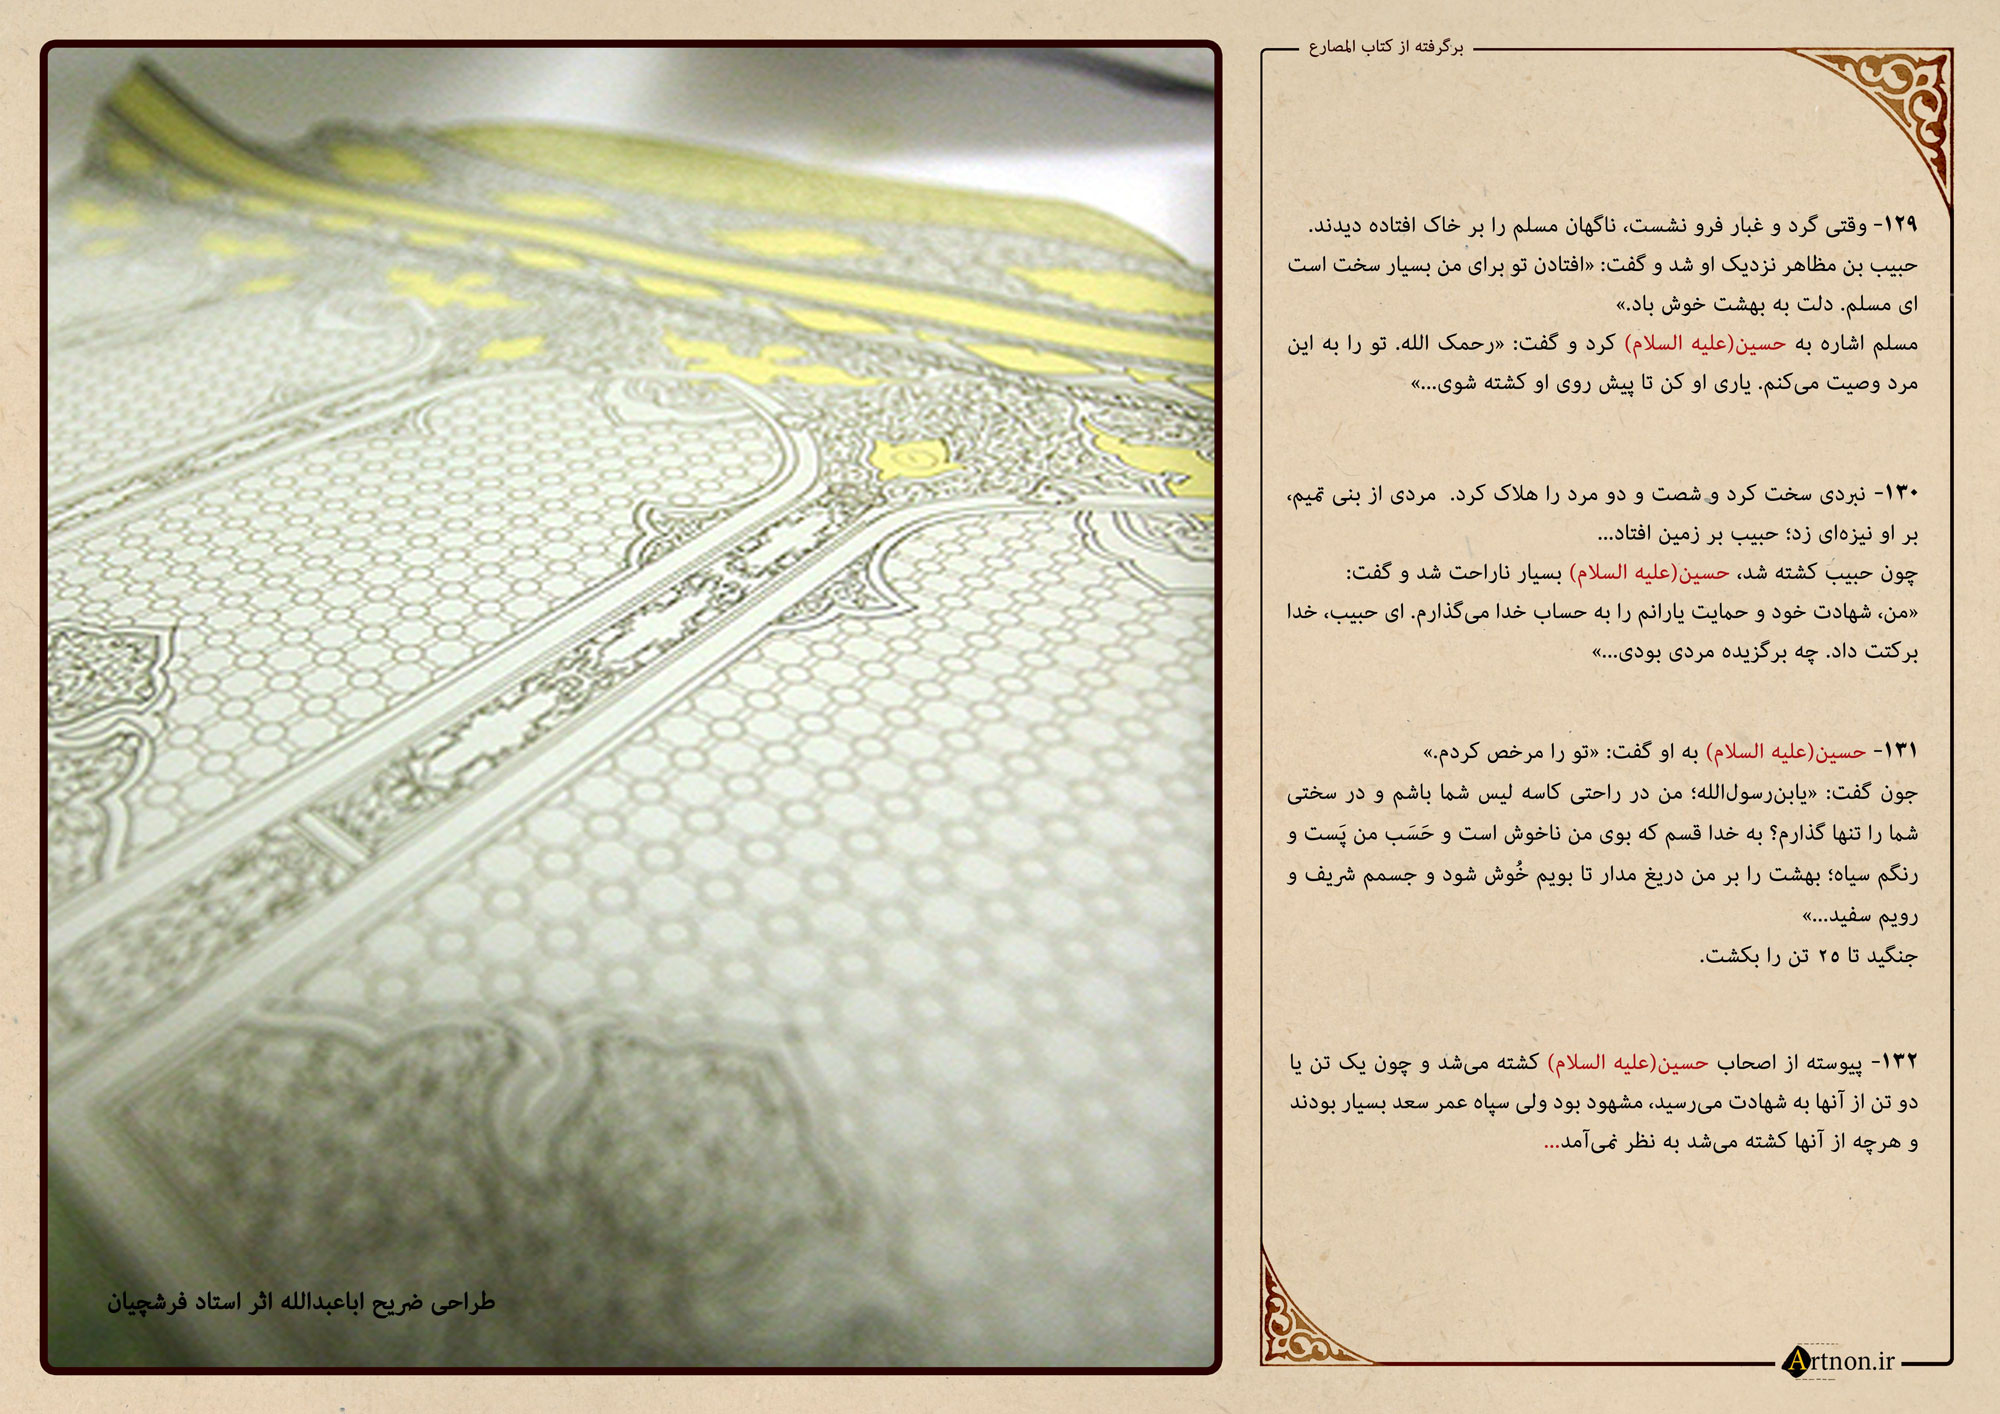 برگرفته از کتاب المصارع
۱۲۹- وقتی گرد و غبار فرو نشست، ناگهان مسلم را بر خاک افتاده دیدند.
حبیب بن مظاهر نزدیک او شد و گفت: «افتادن تو برای من بسیار سخت است
ای مسلم. دلت به بهشت خوش باد.»
مسلم اشاره به حسین(علیه السلام) کرد و گفت: «رحمک الله. تو را به این
مرد وصیت می‌کنم. یاری او کن تا پیش روی او کشته شوی...»
۱۳۰- نبردی سخت کرد و شصت و دو مرد را هلاک کرد. مردی از بنی تمیم،
بر او نیزه‌ای زد؛ حبیب بر زمین افتاد...
چون حبیب کشته شد، حسین(علیه السلام) بسیار ناراحت شد و گفت:
«من، شهادت خود و حمایت یارانم را به حساب خدا می‌گذارم. ای حبیب، خدا
برکتت داد. چه برگزیده مردی بودی...»
۱۳۱- حسین(علیه السلام) به او گفت: «تو را مرخص کردم.»
جون گفت: «یابن‌رسول‌الله؛ من در راحتی کاسه لیس شما باشم و در سختی
شما را تنها گذارم؟ به خدا قسم که بوی من ناخوش است و حَسَب من پَست و
رنگم سیاه؛ بهشت را بر من دریغ مدار تا بویم خُوش شود و جسمم شریف و
رویم سفید...»
جنگید تا ۲۵ تن را بکشت.
۱۳۲- پیوسته از اصحاب حسین(علیه السلام) کشته می‌شد و چون یک تن یا
دو تن از آنها به شهادت می‌رسید، مشهود بود ولی سپاه عمر سعد بسیار بودند
و هرچه از آنها کشته می‌شد به نظر نمی‌آمد...
طراحی ضریح اباعبدالله اثر استاد فرشچیان
Artnon.ir